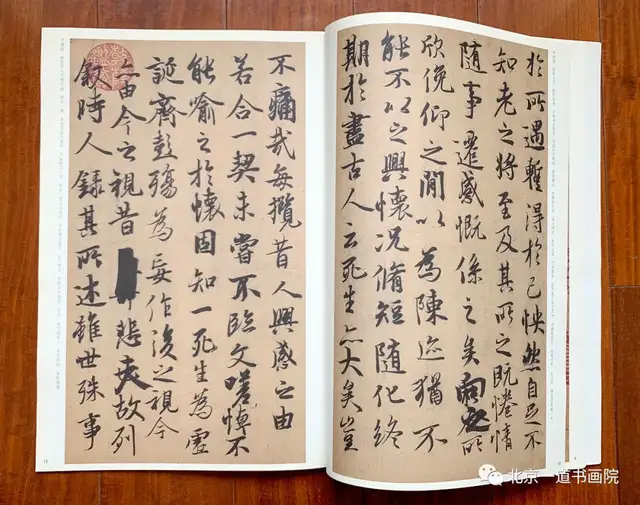 於所遇暫得於己怏然自足不
知老之將至及其所之既惓情
隨事遷感慨係之矣向之所
欣俛仰之閒以為陳迹猶不
能不以之興懷況脩短隨化終
期於盡古人云死生亦大矣豈
不痛哉每攬昔人興感之由
若合一契未嘗不臨文嗟悼不
能喻之於懷固知一死生為虛
誕齊彭殤為妄作後之視今
亦由今之視昔悲夫故列
敘時人錄其所述雖世殊事
北京一道书画院